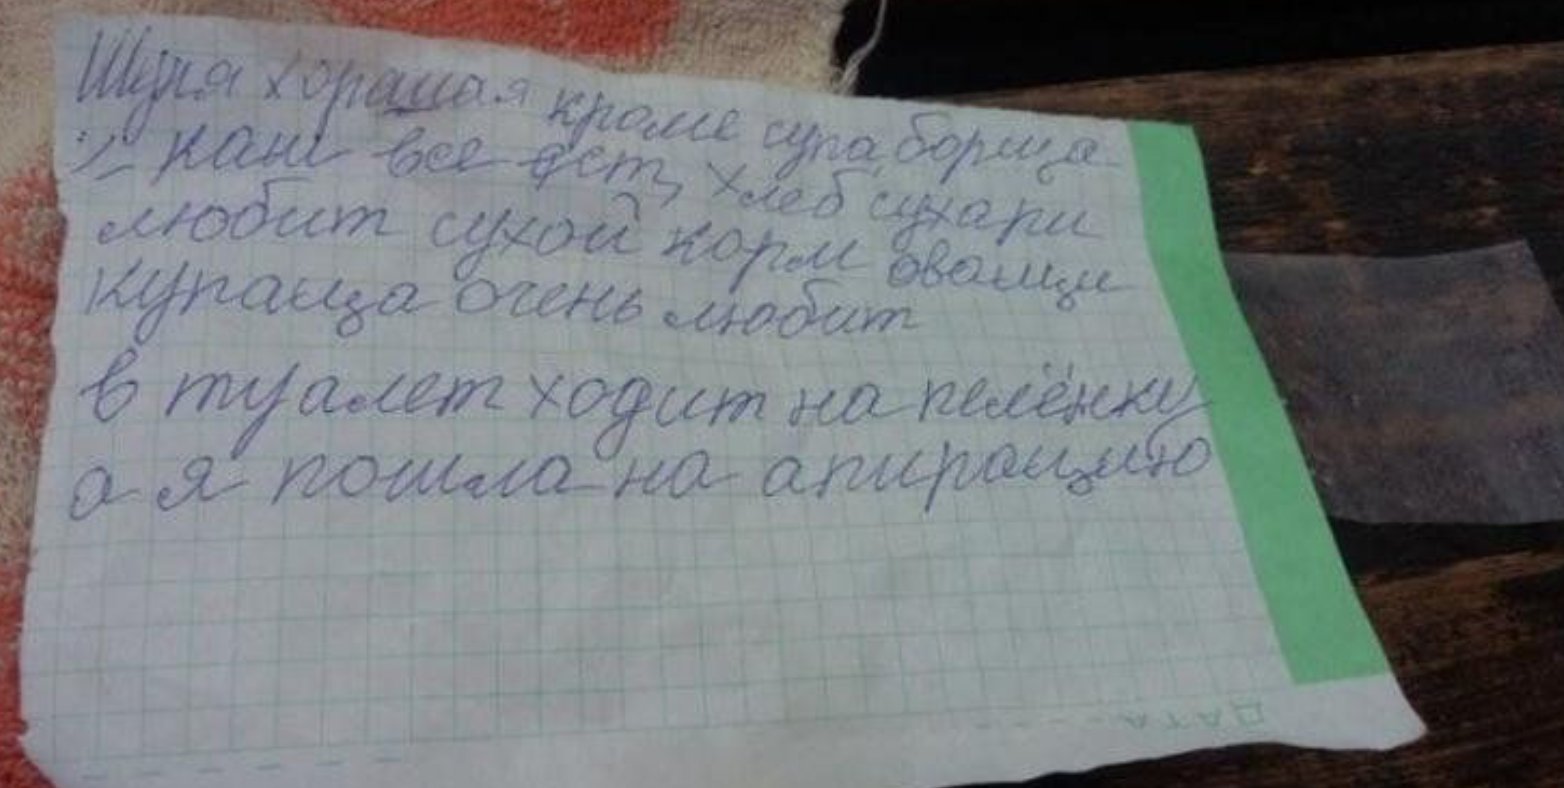 Шуля хорашая кроме супа, борща
и каш все ест, хлеб сухари
любит сухой корм овощи
купаца очень любит
в туалет ходит на пелёнку
а я пошла на апирацию
ДАТА